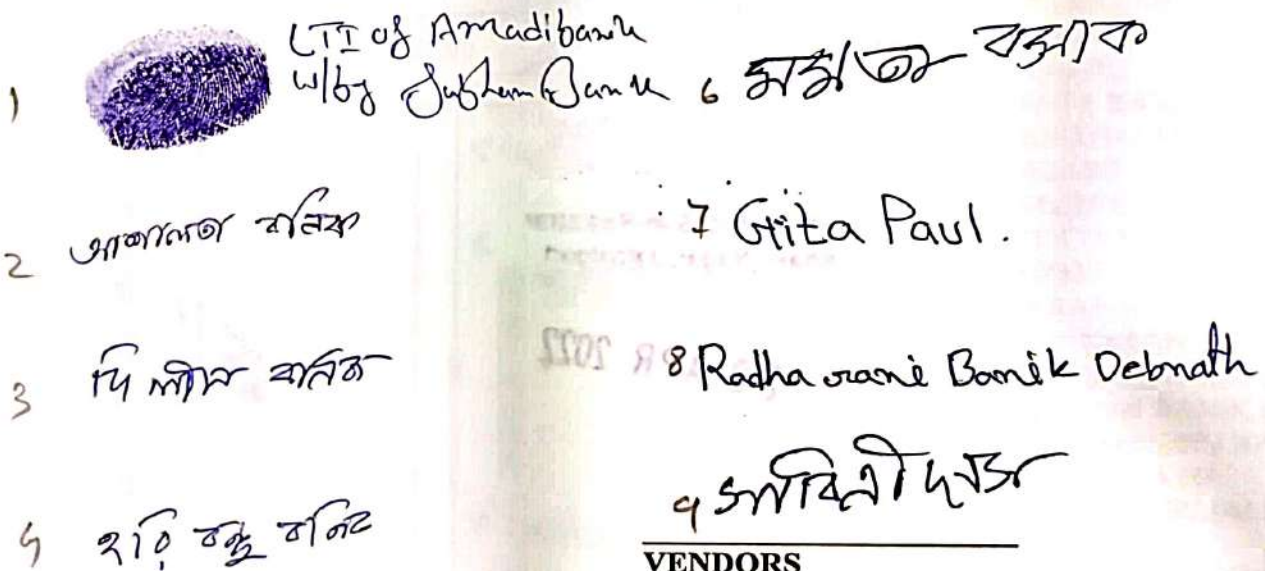 1
LTI of Amadibanik
W/by Subham Banik
2 আশালতা বনিক
3 দিলীপ বনিক
4 হরি বন্ধু বনিক
6 মমতা বসাক
7 Gita Paul.
8 Radha rani Banik Debnath
9 সাবিত্রী দাস
VENDORS